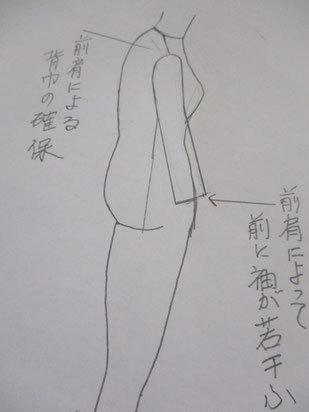 前肩による
背巾の確保
前肩によって
前に袖が若干ふ